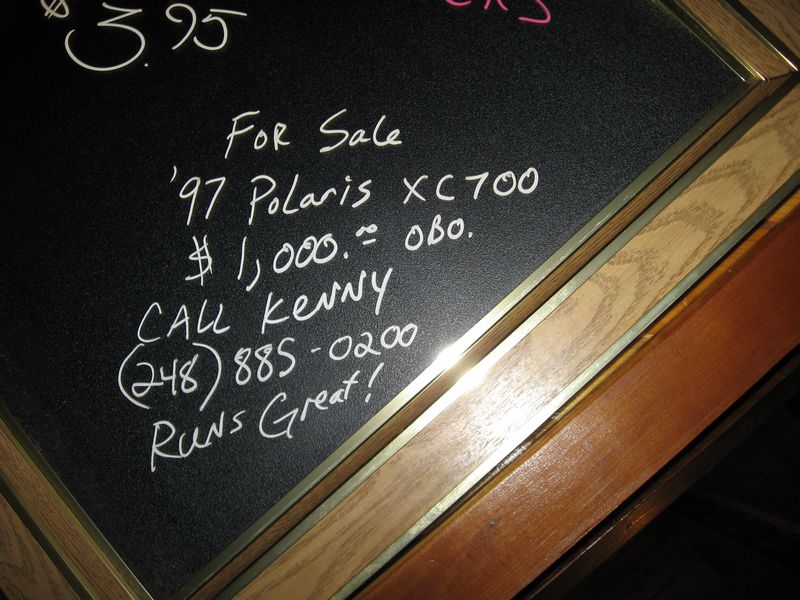 $3.95
For Sale
'97 Polaris XC700
$1,000.00 OBO.
CALL KENNY
(248) 885-0200
RUNS Great!